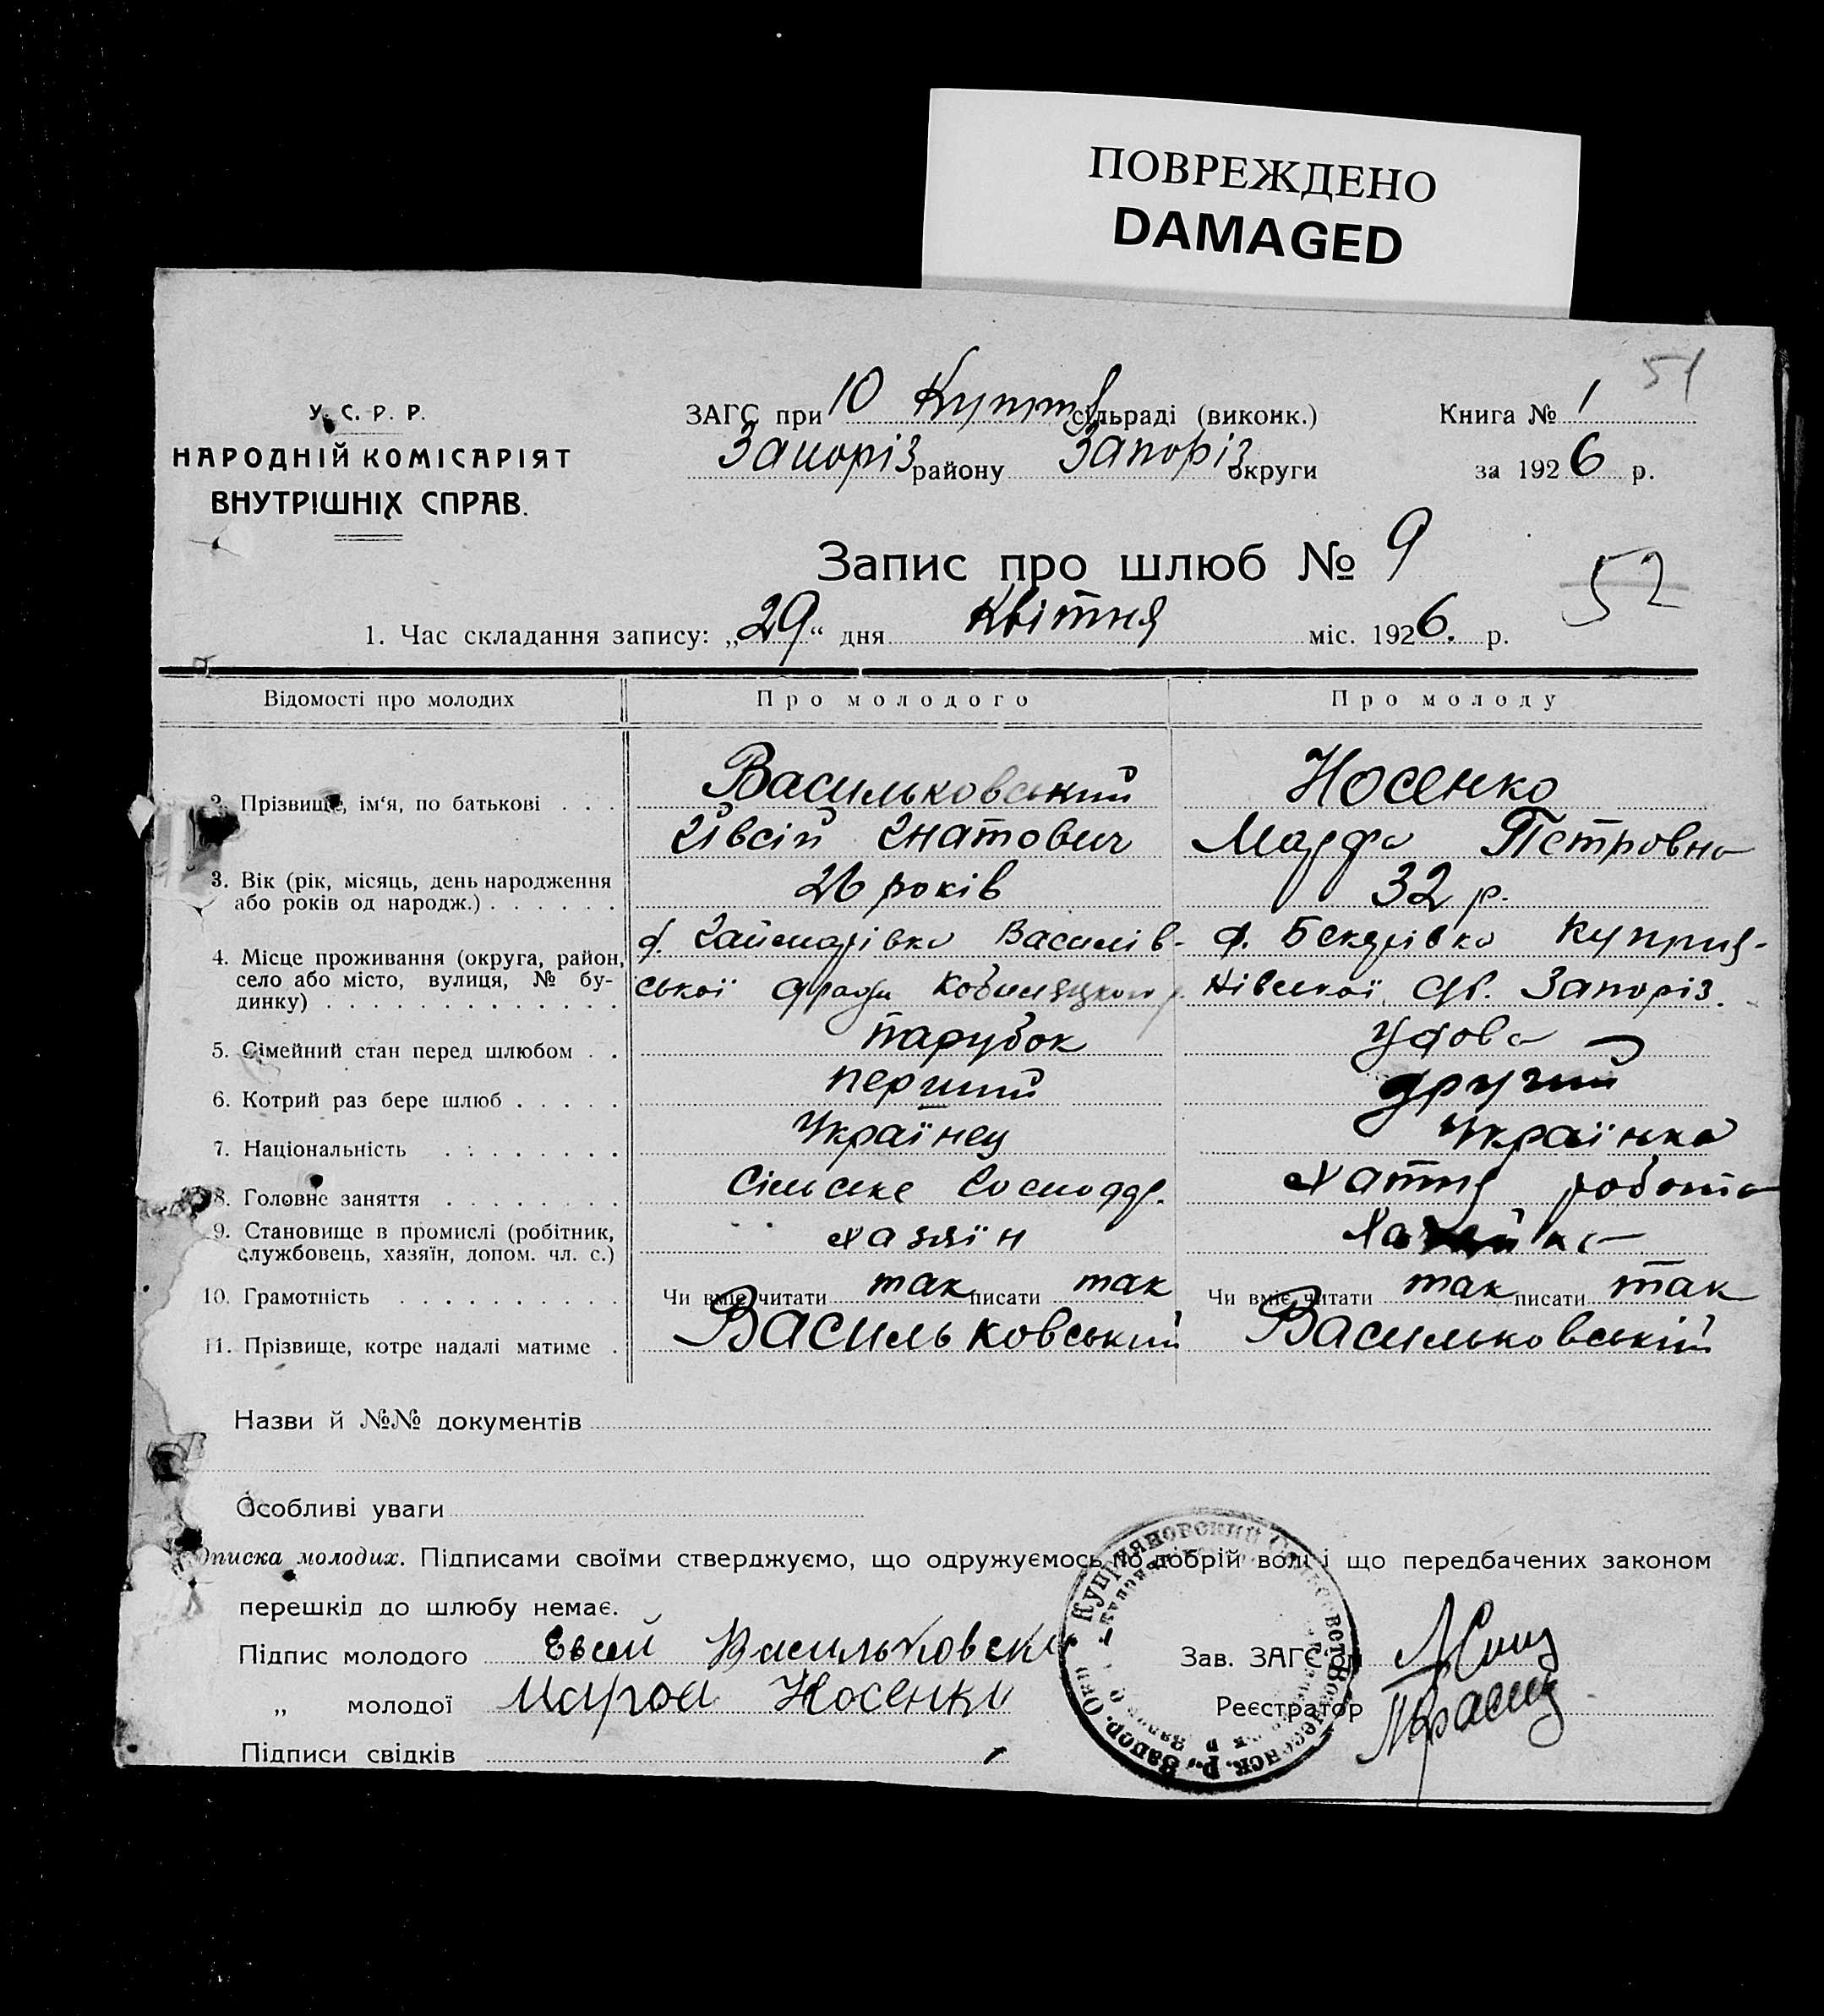 ПОВРЕЖДЕНО
DAMAGED
51
У. С. Р. Р.
НАРОДНІЙ КОМІСАРІЯТ
ВНУТРІШНІХ СПРАВ.
ЗАГС при 10 сільраді (виконк.) Книга № 1
Запоріз району Запоріз округи за 1926 р.
Запис про шлюб № 9
52
1. Час складання запису: „29“ дня Квітня міс. 1926. р.
Відомості про молодих Про молодого Про молоду
2. Прізвище, ім‘я, по батькові . . . Васильковський Носенко
Івсій Гнатович Марфа Петровна
3. Вік (рік, місяць, день народження
або років од народж.) . . . . . . 26 років 32 р.
4. Місце проживання (округа, район, Василів- Куприя-
село або місто, вулиця, № бу-
динку) . . . . . . . . . . . . . ської нівської Запоріз.
5. Сімейний стан перед шлюбом . . парубок удова
6. Котрий раз бере шлюб . . . . . перший другий
7. Національність . . . . . . . . Українец Українка
8. Головне заняття . . . . . . . . Сільске Господар. Хатня робота
9. Становище в промислі (робітник,
службовець, хазяїн, допом. чл. с.) хазяїн
10. Грамотність . . . . . . . . . . Чи вміє читати так писати так Чи вміє читати так писати так
11. Прізвище, котре надалі матиме . Васильковський Васильковській
Назви й №№ документів
Особливі уваги
описка молодих. Підписами своїми стверджуємо, що одружуємось по добрій волі і що передбачених законом
перешкід до шлюбу немає.
Підпис молодого Евсей Васильковски Зав. ЗАГС'у
„ молодої Марфа Носенко Реєстратор
Підписи свідків